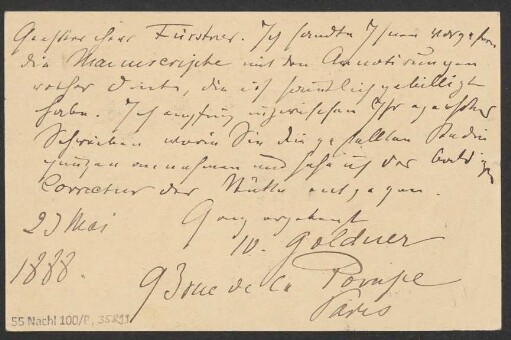 Geehrter Herr Fürstner. Ich sandte Ihnen vorgestern
die Manuscripte mit den Annotirungen
rother Dinte, die ich sämtlich gebilligt
habe. Ich empfing inzwischen Ihr geehrtes
Schreiben worin Sie die gestellten Bedin
gungen annahmen und sehe ich der baldigen
Correctur der Stücke entgegen.
23 Mai
Ganz ergebenst
W. Goldner
1888.
93 rue de la Pompe
Paris
55 Nachl 100/P, 35891